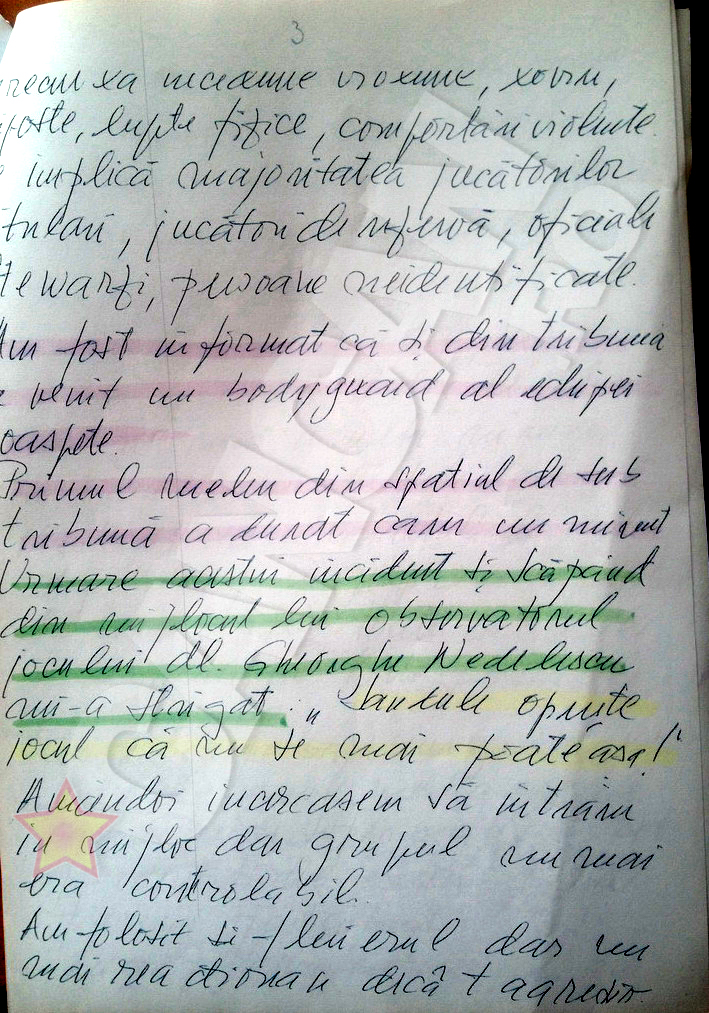 3
la incidente violente,
lupte fizice, comportări violente.
implică majoritatea jucătorilor
jucători de rezervă, oficiali
persoane neidentificate.
Am fost informat că și din tribună
venit un bodyguard al echipei
oaspete.
Primul melen din spatiul de sub
tribună a durat cam un minut
Urmare acestui incident și scăpând
din mijlocul lui observatorul
jocului dl. Gheorghe Nedelescu
mi-a strigat: „ opriste
jocul că nu se mai poate așa!"
Amândoi incercasem să intrăm
in mijloc dar grupul nu mai
era controlabil.
Am folosit si fluierul dar nu
mai reactionau decât agresiv.